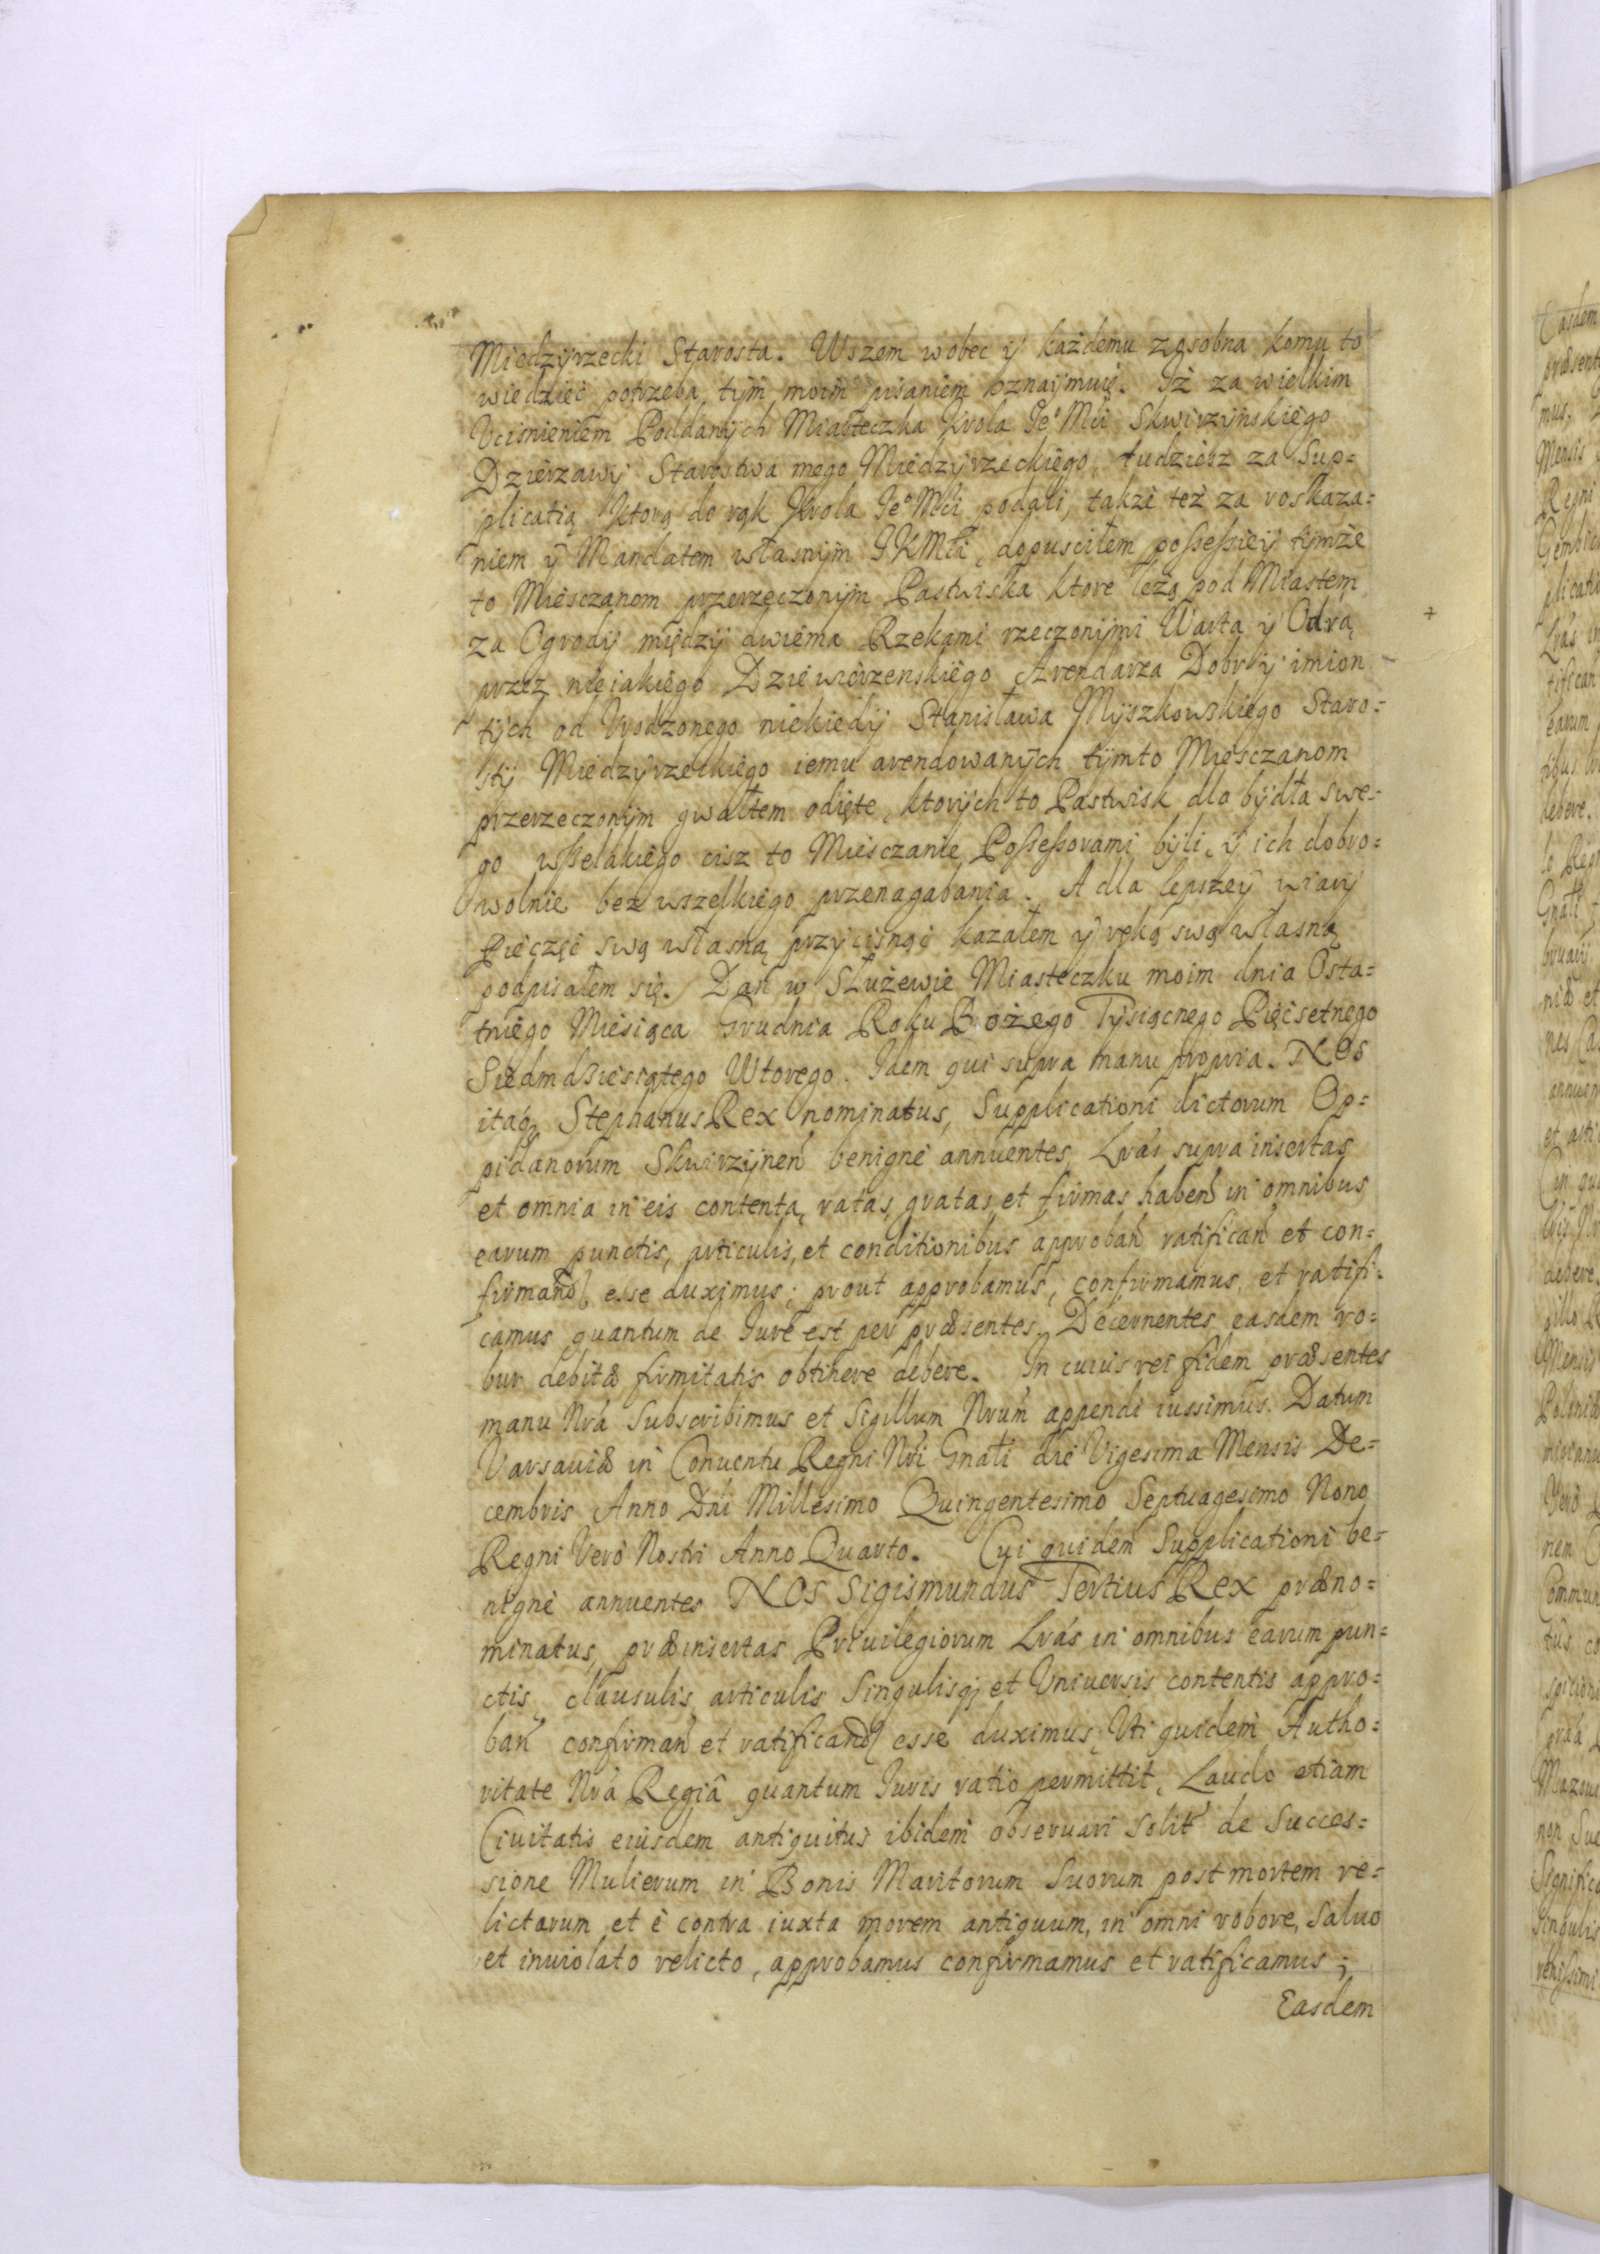 Miedzyrzecki Starosta. Wszem wobec y każdemu zosobna komu to
wiedzieć potrzeba tym moim pisaniem oznaymuię. Iż za wielkim
Vcisnieniem Poddanych Miasteczka Krola Ie° Mci Skwirzynskiego
Dzierzawy Starostwa mego Miedzyrzeckiego, tudziesz za Sup=
plicatią ktorą do rąk Krola Ie° Mci podali, także też za roskaza=
niem y Mandatem własnym IKMci, dopusciłem possessiey tymże
to Miesczanom przerzeczonym Pastwiska ktore leżą pod Miastem
za Ogrody między dwiema Rzekami rzeczonymi Warta y Odrą
przez nieiakiego Dziewierzenskiego Arendarza Dobr y imion
tych od Vrodzonego niekiedy Stanisława Myszkowskiego Staro=
sty Miedzyrzeckiego iemu arendowanych tymto Miesczanom
przerzeczonym gwałtem odięte, ktorych to Pastwisk dla bydła swe=
go wsselakiego cisz to Miesczanie Possessorami byli, y ich dobro=
wolnie bez wszelkiego przenagabania. A dla lepszey wiary
Pieczęć swą własną przycisnąć kazałem y ręką swą własną
podpisałem się. Dan w Służewie Miasteczku moim dnia Osta=
tniego Miesiąca Grudnia Roku Bożego Tysiącnego Pięćsetnego
Siedmdziesiątego Wtorego. Idem qui supra manu propria. NOS
itaq; Stephanus Rex nominatus, Supplicationi dictorum Op=
pidanorum Skwirzynen benigne annuentes, Lrás supra insertas
et omnia in eis contenta, ratas, gratas, et firmas habend in omnibus
earum punctis, articulis, et conditionibus approban ratifican et con=
firmand esse duximus; prout approbamus, confirmamus, et ratifi=
camus quantum de Iure est per præsentes. Decernentes easdem ro=
bur debitæ firmitatis obtinere debere. In cuius rei fidem præsentes
manu Nrá Subscribimus et Sigillum Nrum appendi iussimus. Datum
Varsauiæ in Conuentu Regni Nri Gnáli die Vigesima Mensis De=
cembris Anno Dni Millesimo Quingentesimo Septuagesimo Nono
Regni Verò Nostri Anno Quarto. Cui quidem Supplicationi be=
nignè annuentes NOS Sigismundus Tertius Rex præno=
minatus, præinsertas Priuilegiorum Lrás in omnibus earum pun=
ctis, clausulis, articulis Singulisq; et Vniuersis contentis appro=
ban confirman et ratificand esse duximus, Vti quidem Autho=
ritate Nrá Regiâ quantum Iuris ratio permittit, Laudo etiam
Ciuitatis eiusdem antiquitus ibidem obseruari Solit de Succes=
sione Mulierum in Bonis Maritorum Suorum post mortem re=
lictarum et è contra iuxta morem antiquum, in omni robore, Saluo
et inuiolato relicto, approbamus confirmamus et ratificamus;
Easdem